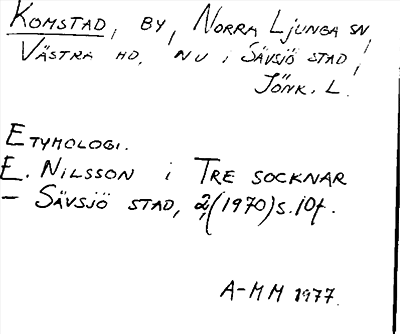 KOMSTAD, BY, NORRA LJUNGA SN,
VÄSTRA HD. NU I SÄVSJÖ STAD,
JÖNK. L.
ETYMOLOGI.
E. NILSSON i TRE SOCKNAR
– SÄVSJÖ STAD, 2, (1970) s. 10f.
A-MM 1977.